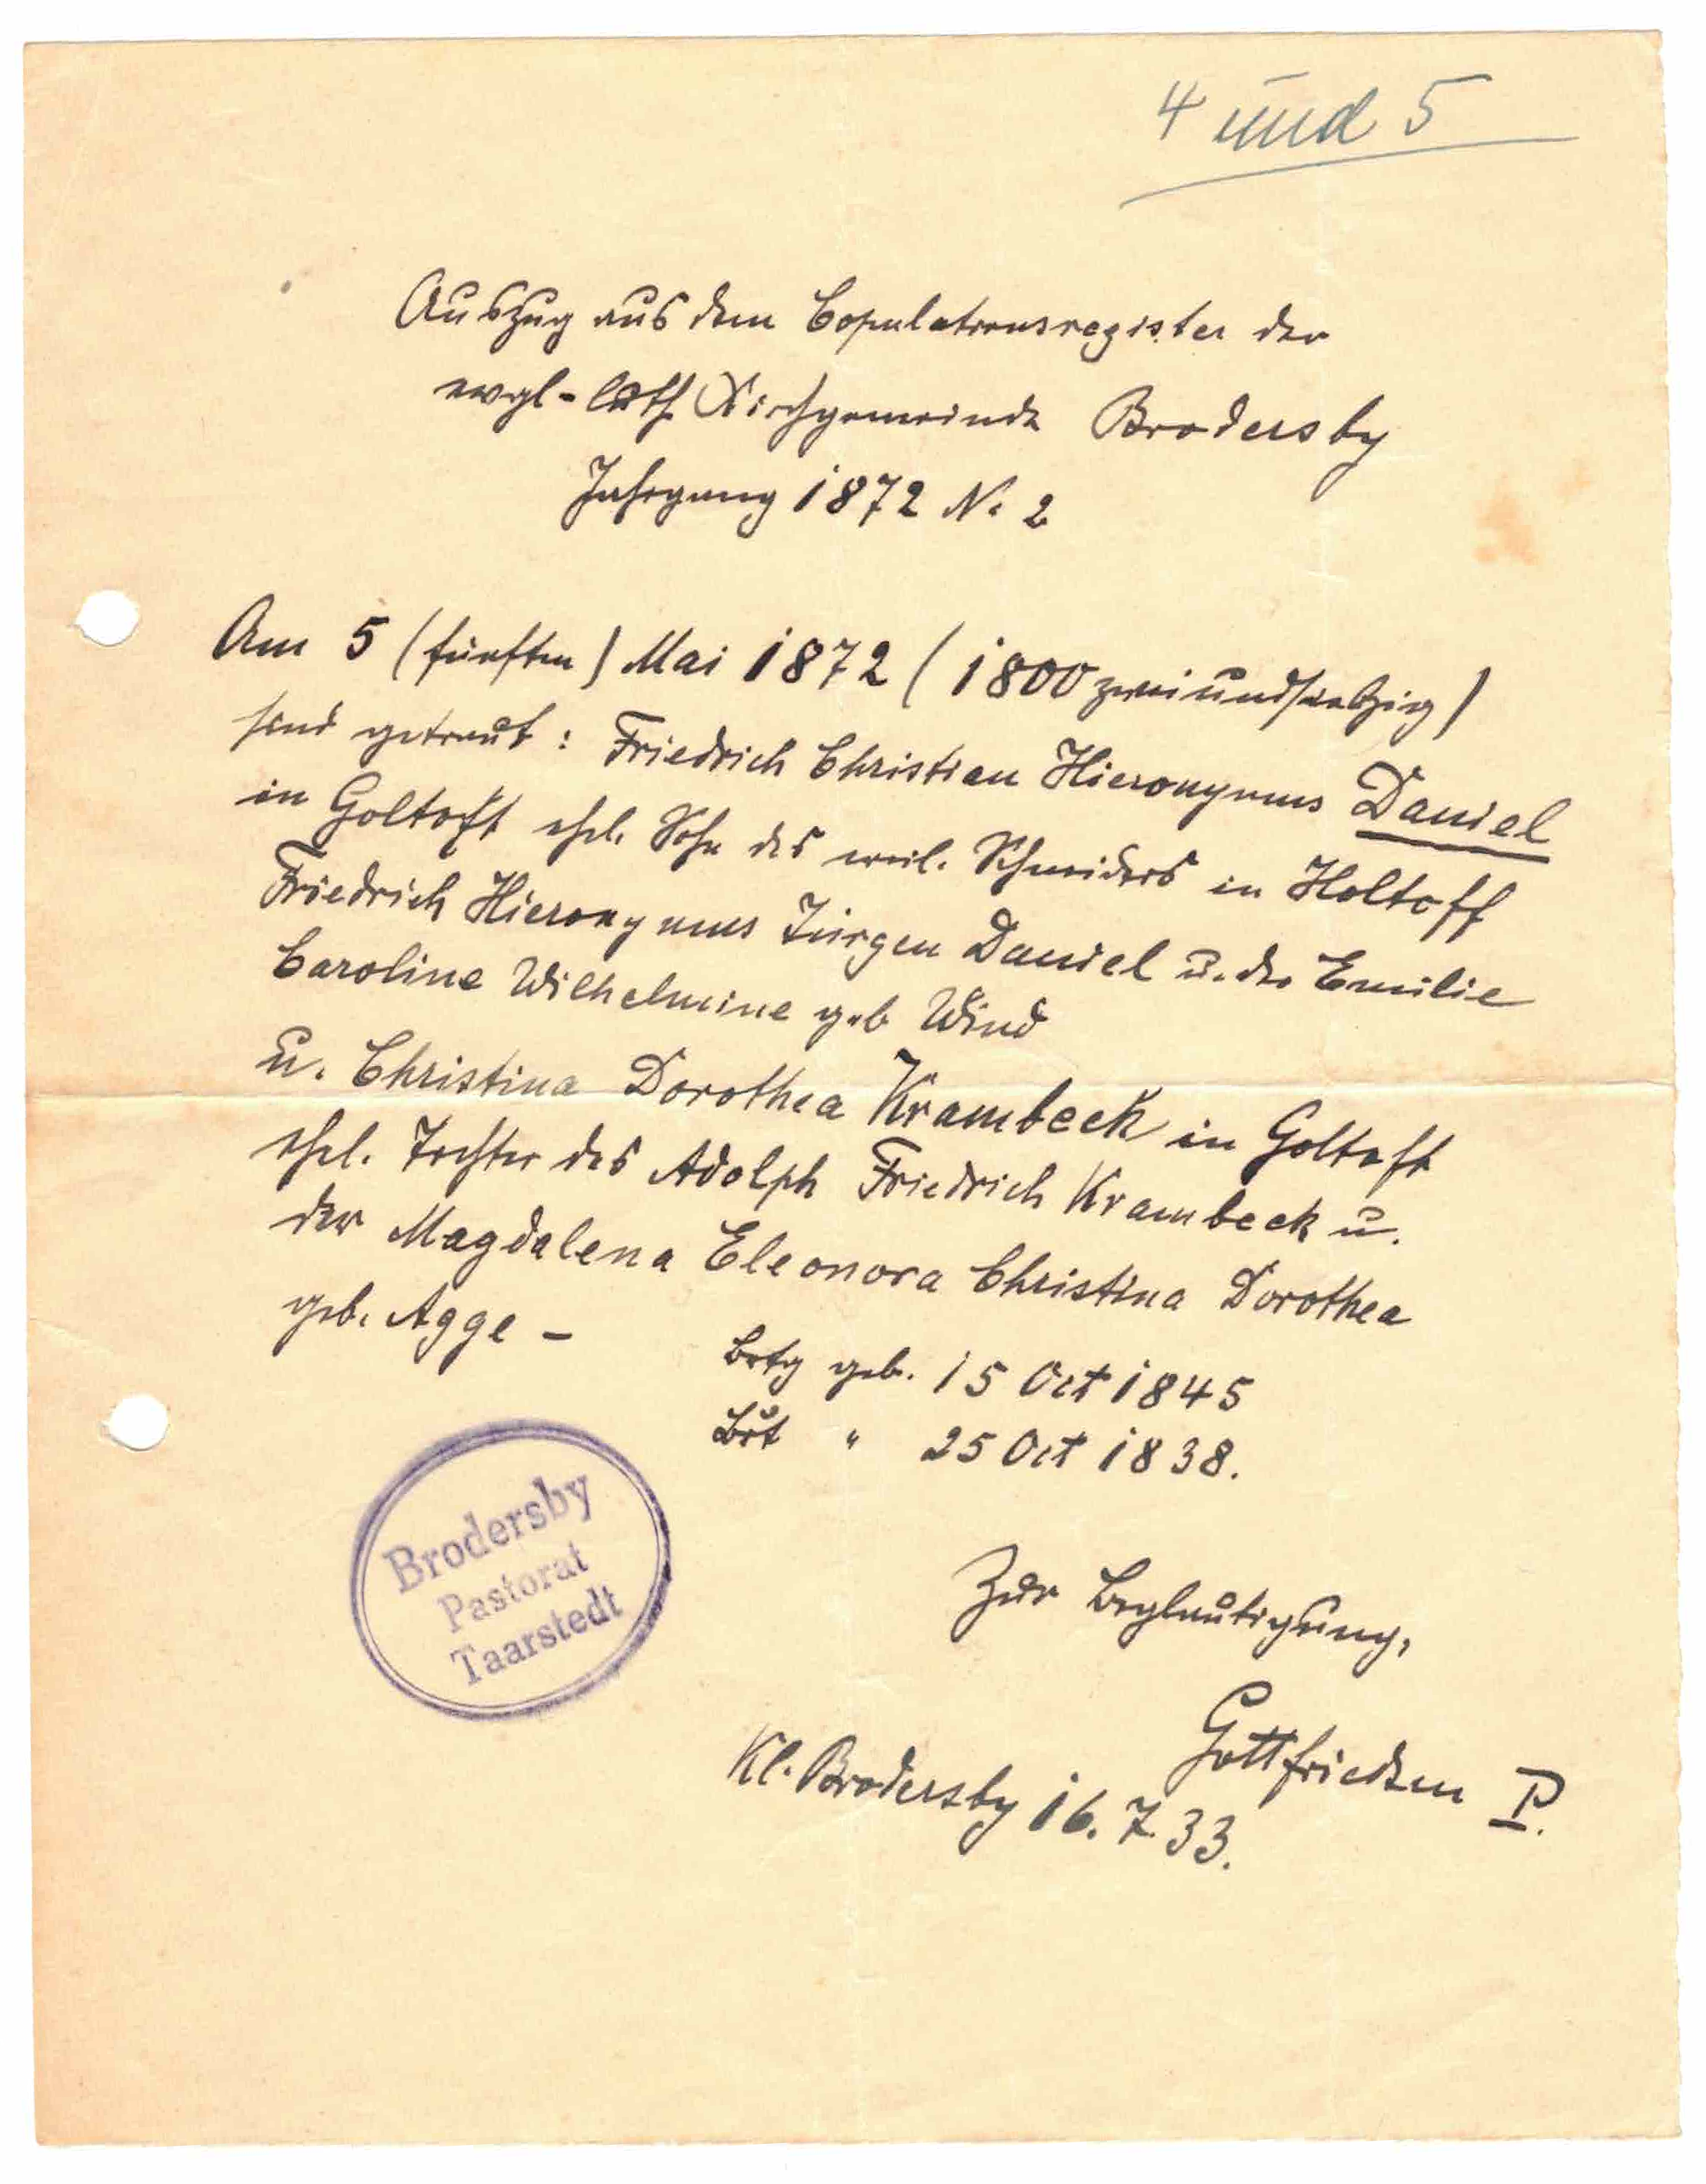 4 und 5
Auszug aus dem Copulationsregister der
evgl-luth Kirchgemeinde Brodersby
Jahrgang 1872 N. 2
Am 5 (fünften) Mai 1872 (1800 zweiundsiebzig)
sind getraut: Friedrich Christian Hieronymus Daniel
in Goltoft ehel. Sohn des weil. Schneiders in Holtoff
Friedrich Hieronymus Jürgen Daniel u. der Emilie
Caroline Wilhelmine geb Wind
u. Christina Dorothea Krambeck in Goltoft
ehel. Tochter des Adolph Friedrich Krambeck u.
der Magdalena Eleonora Christina Dorothea
geb. Agge –
Brtg geb. 15 Oct 1845
Brt " 25 Oct 1838.
Brodersby
Pastorat
Taarstedt
Zur Beglaubigung,
Gottfriedsen P.
Kl. Brodersby 16. 7 33.